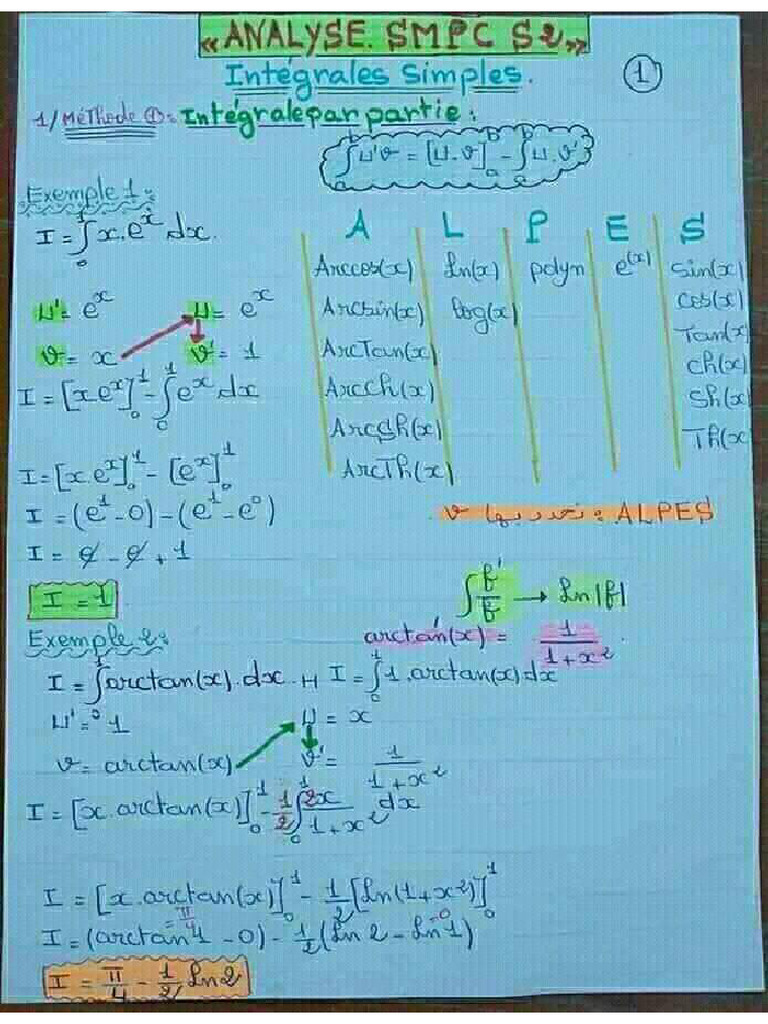 «ANALYSE. SMPC S2»
Intégrales Simples.
1
1/ Méthode ①: Intégrale par partie:
∫ₐᵇ u'v = [u.v]ₐᵇ - ∫ₐᵇ u.v'
Exemple 1:
I = ∫₀¹ x.eˣ dx.
u' = eˣ u = eˣ
v = x v' = 1
I = [x eˣ]₀¹ - ∫₀¹ eˣ dx
I = [x eˣ]₀¹ - [eˣ]₀¹
I = (e¹ - 0) - (e¹ - e⁰)
I = e - e + 1
I = 1
A L P E S
Arccos(x) ln(x) polyn e⁽ˣ⁾ sin(x)
Arcsin(x) log(x) cos(x)
ArcTan(x) Tan(x)
Arcch(x) ch(x)
Arcsh(x) Sh(x)
ArcTh(x) Th(x
ALPES : نحدد بها v
∫ f'/f → ln|f|
arctan'(x) = 1/(1+x²)
Exemple 2:
I = ∫₀¹ arctan(x).dx H I = ∫₀¹ 1.arctan(x)dx
u' = 1 u = x
v = arctan(x) v' = 1/(1+x²)
I = [x.arctan(x)]₀¹ - 1/2 ∫₀¹ 2x/(1+x²) dx
I = [x.arctan(x)]₀¹ - 1/2 [ln(1+x²)]₀¹
=π/4 =0
I = (arctan 1 - 0) - 1/2 (ln 2 - ln 1)
I = π/4 - 1/2 ln2